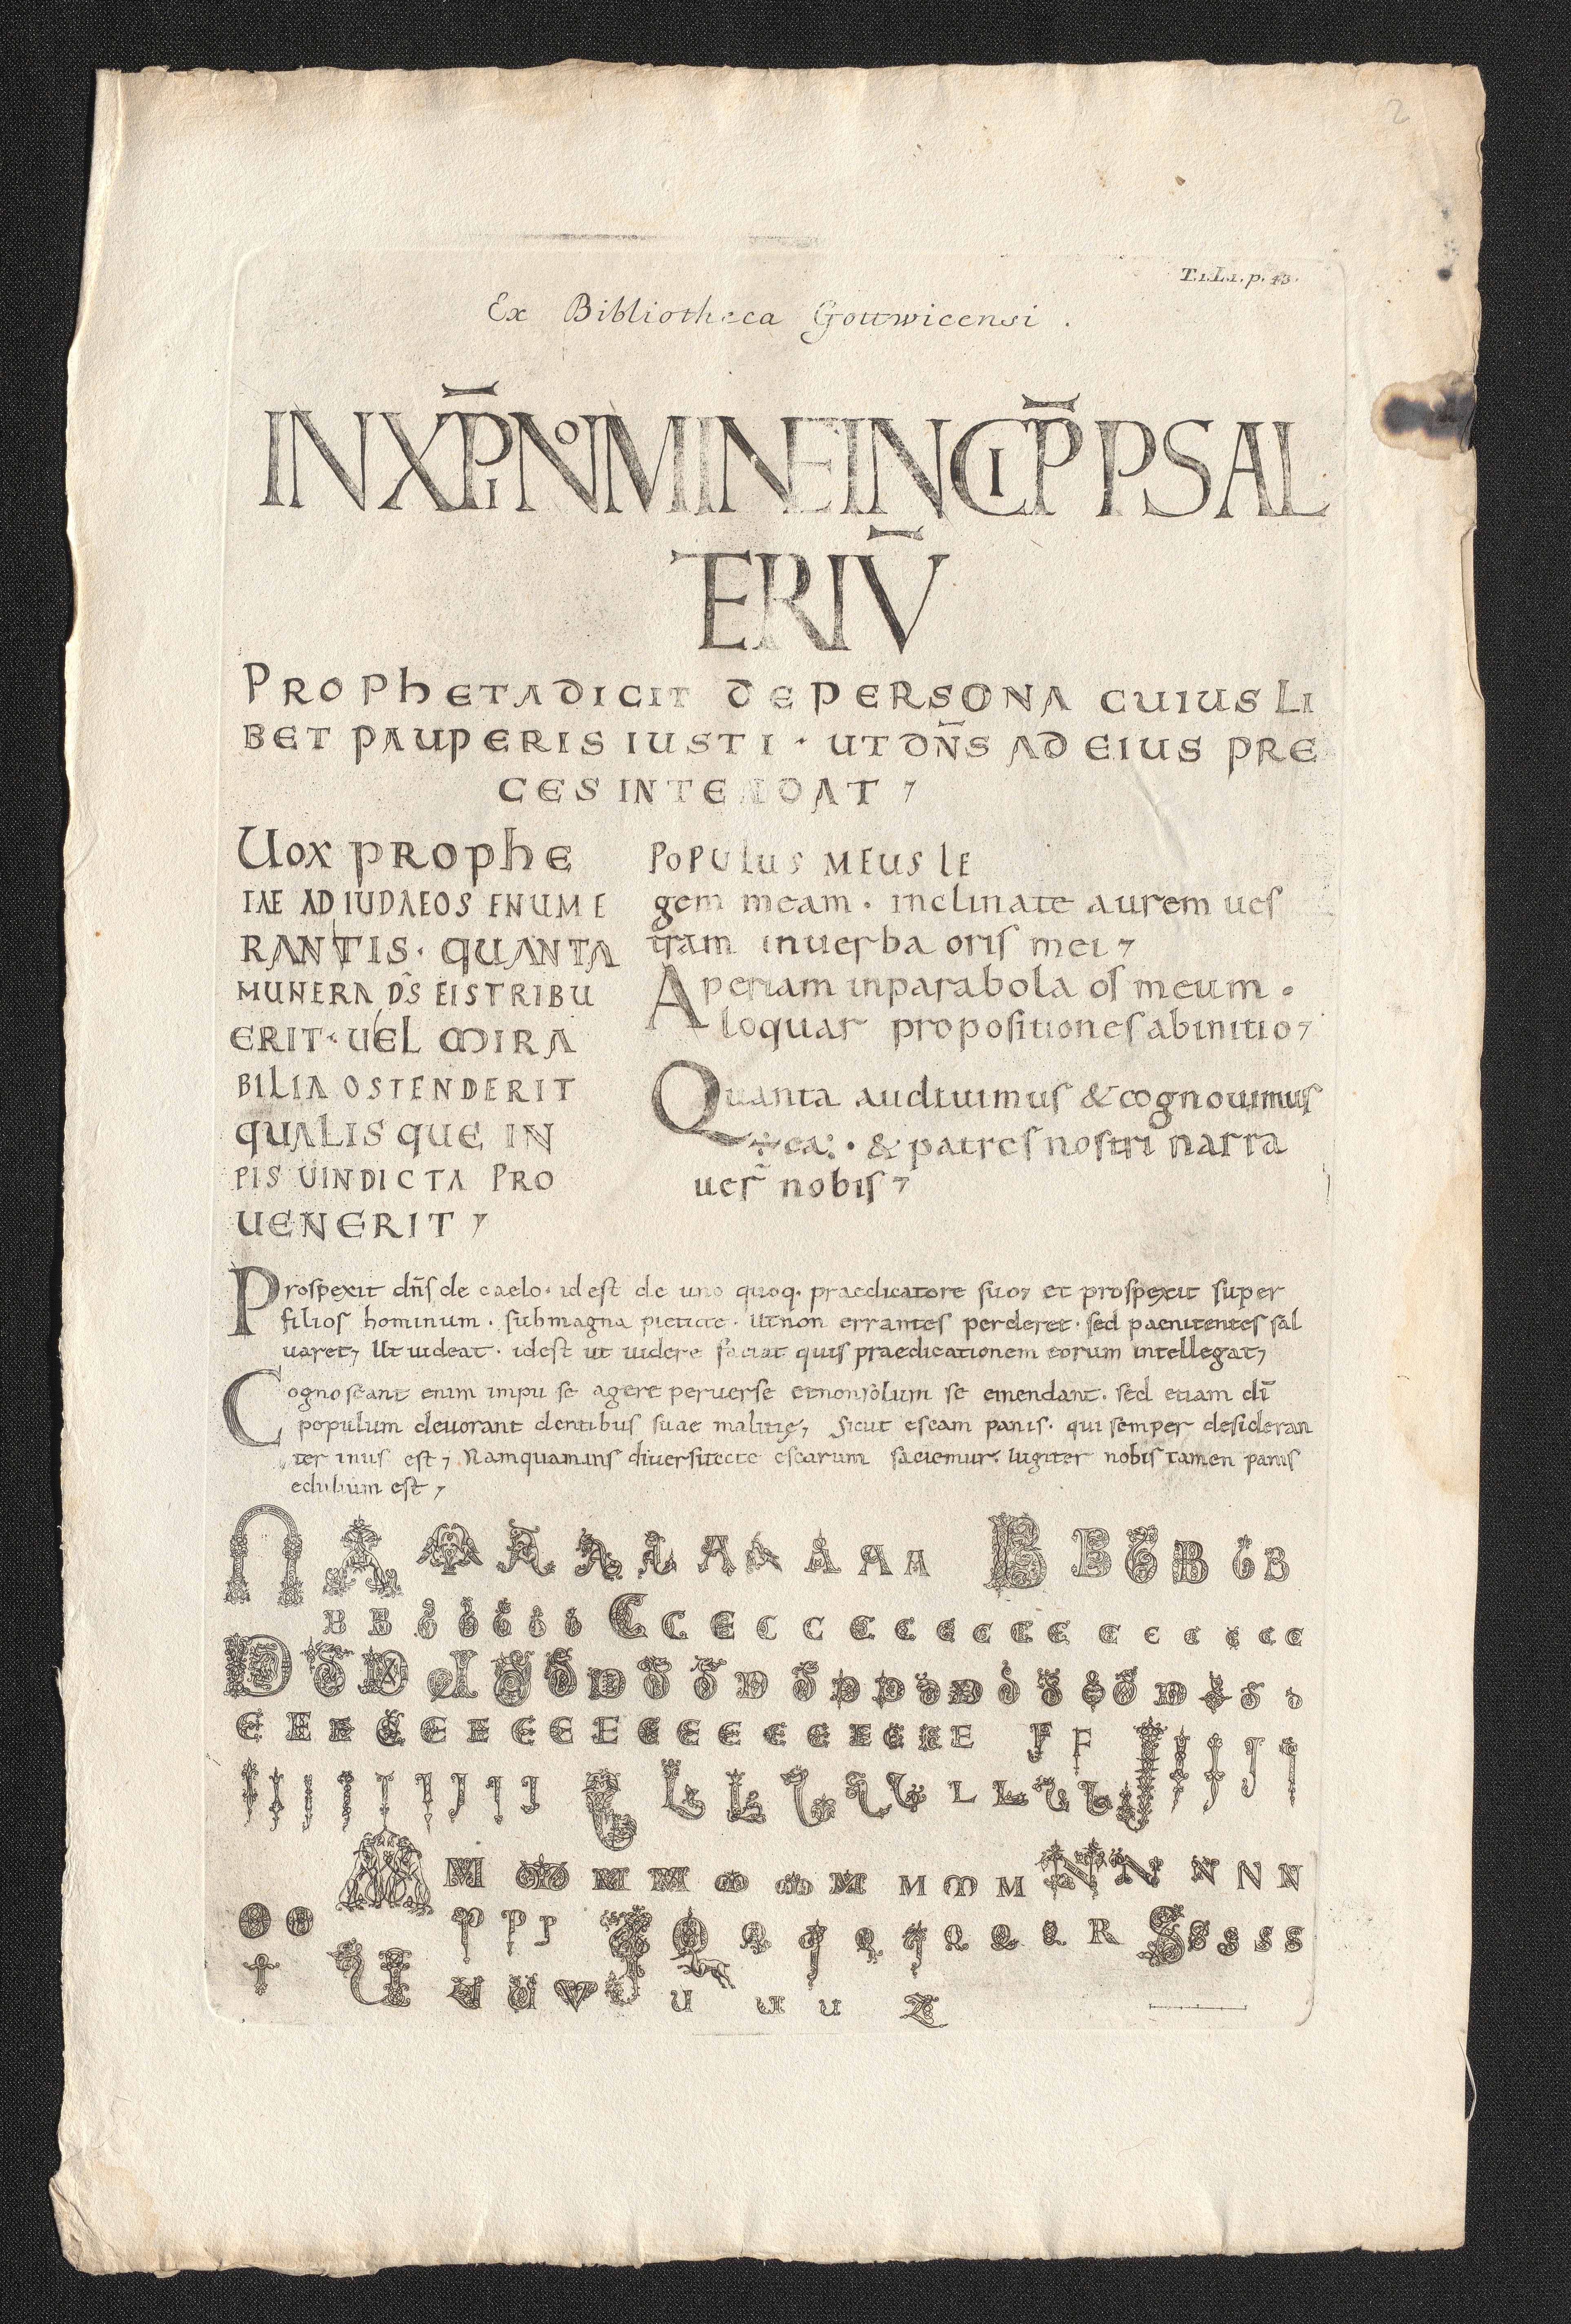 2
T.1.L.1.p.43.
Ex Bibliotheca Gottwicensi .
IN XP̄I NOMINE INCIP̄ PSAL
TERIŪ
PROPhETA DICIT DE PERSONA CUIUSLI
BET PAUPERIS IUSTI · UT DN̄S AD EIUS PRE
CES INTENDAT ;
Uox PROPhE
TAE AD IUDAEOS ENUME
RANTIS · QUANTA
MUNERA DS̄ EIS TRIBU
ERIT · UEL MIRA
BILIA OSTENDERIT
QUALISQUE IN
PIS UINDICTA PRO
UENERIT ;
POPULUS MEUS LE
gem meam · inclinate aurem ues
tram in uerba oris mei ;
Aperiam in parabola os meum ·
loquar propositiones ab initio ;
Quanta audiuimus & cognouimus
÷ ea : · & patres nostri narra
uer̄ nobis ;
Prospexit dn̄s de caelo · id est de uno quoq · praedicatore suo ; et prospexit super
filios hominum · sub magna pietate · Ut non errantes perderet · sed paenitentes sal
uaret ; Ut uideat · id est ut uidere faciat quis praedicationem eorum intellegat ;
Cognoscant enim impii se agere peruerse et non solum se emendant · sed etiam di̅
populum deuorant dentibus suae malitię ; Sicut escam panis · qui semper desideran
ter inus est ; Namquamuis diuersitate escarum saciemur · Iugiter nobis tamen panis
edulium est ;
A A A A A A A A A A A B B B B B B
B B B B B B B C C C C C C C C C C C C C C C C
D D D D D D D D D D D D D D D D D D D D D D D
E E E E E E E E E E E E E E E E E F F I I I I I
I I I I I I I I I L L L L L L L L L L
M M M M M M M M M M M N N N N N
O O P P P Q Q Q Q Q Q Q Q Q R S S S S S
T U U U U U U U U Z